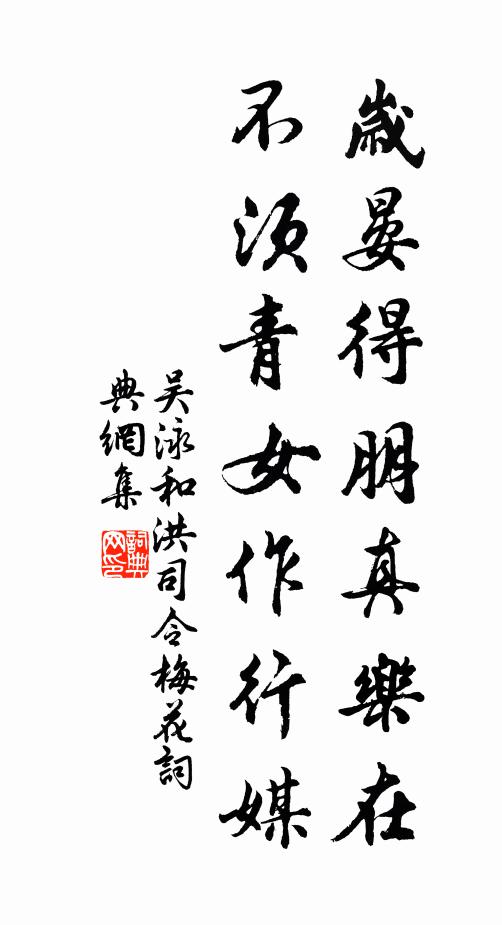 歲晏得朋真樂在
不須青女作行媒
吳泳和洪司令梅花詞
典網集
詞典网印